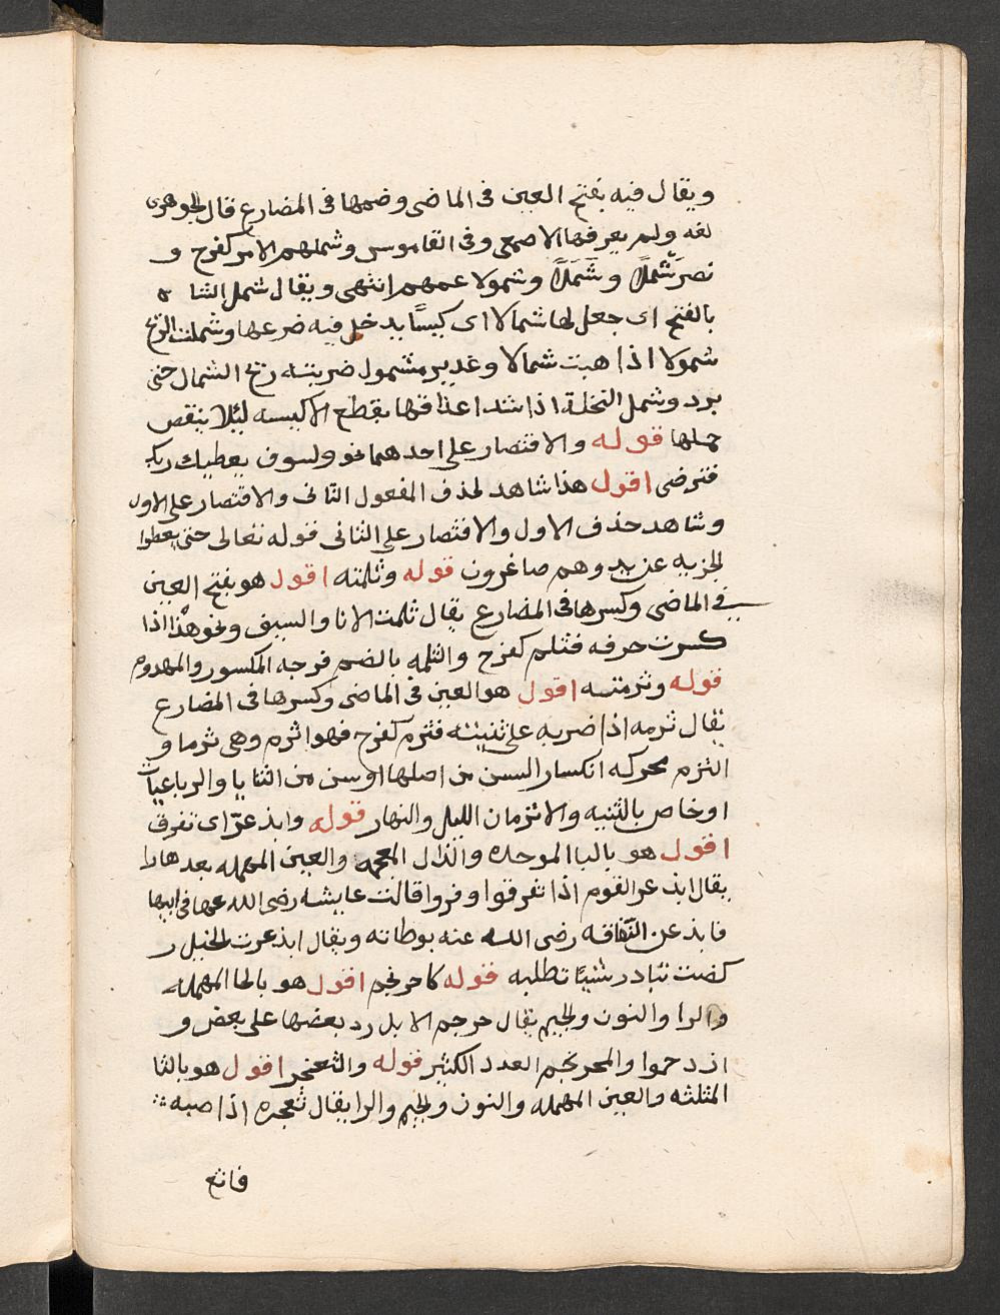 ويقال فيه بفتح العين فى الماضى وضمها فى المضارع قال الجوهرى
لغه ولم يعرفها الاصمعى وفى القاموس وشملهم الامر كفرح و
نصر شَملًا وشَمَلًا وشمولا عمهم انتهى ويقال شمل الشا ه
بالفتح اى جعل لها شمالا اى كيسًا يدخل فيه ضرعها وشملت الريح
شمولا اذا هبت شمالا وغدير مشمول ضربته ريح الشمال حتى
برد وشمل النخلة اذا شد اعذاقها بقطع الاكيسه ليلا ينقص
حملها قوله والاقتصار على احدهما نحو ولسوف يعطيك ربك
فترضى اقول هذا شاهد لحذف المفعول الثانى والاقتصار على الاول
وشاهد حذف الاول والاقتصار على الثانى قوله تعالى حتى يعطوا
الجزيه عن يد وهم صاغرون قوله وثلمته اقول هو بفتح العين
فى الماضى وكسرها فى المضارع يقال ثلمت الانا والسيف ونحو هذا اذا
كسرت حرفه فثلم كفرح والثلمه بالضم فرجه المكسور والمهدوم
قوله وثرمته اقول هو العين فى الماضى وكسرها فى المضارع
يقال ثرمه اذا ضربه على ثنيته فثرم كفرح فهو اثرم وهى ثرما و
الثرم محركه انكسار السن من اصلها او سن من الثنايا والرباعيات
او خاص بالثنيه والاثرمان الليل والنهار قوله وابذعرّ اى تفرق
اقول هو بالبا الموحده والذال المعجمه والعين المهمله بعدها را
يقال ابذعر القوم اذا تفرقوا وفروا قالت عايشه رضى الله عنها فى ابيها
فابذعر النفاقه رضى الله عنه بوطاته ويقال ابذعرت الخيل ر
كضت تبادر شيئا تطلبه قوله كاحرنجم اقول هو بالحا المهمله
والرا والنون والجيم يقال حرجم الابل رد بعضها على بعض و
ازدحموا والمحرنجم العدد الكثير قوله واثعنجر اقول هو بالثا
المثلثه والعين المهمله والنون والجيم والرا يقال ثعجره اذا صبه
فاثع